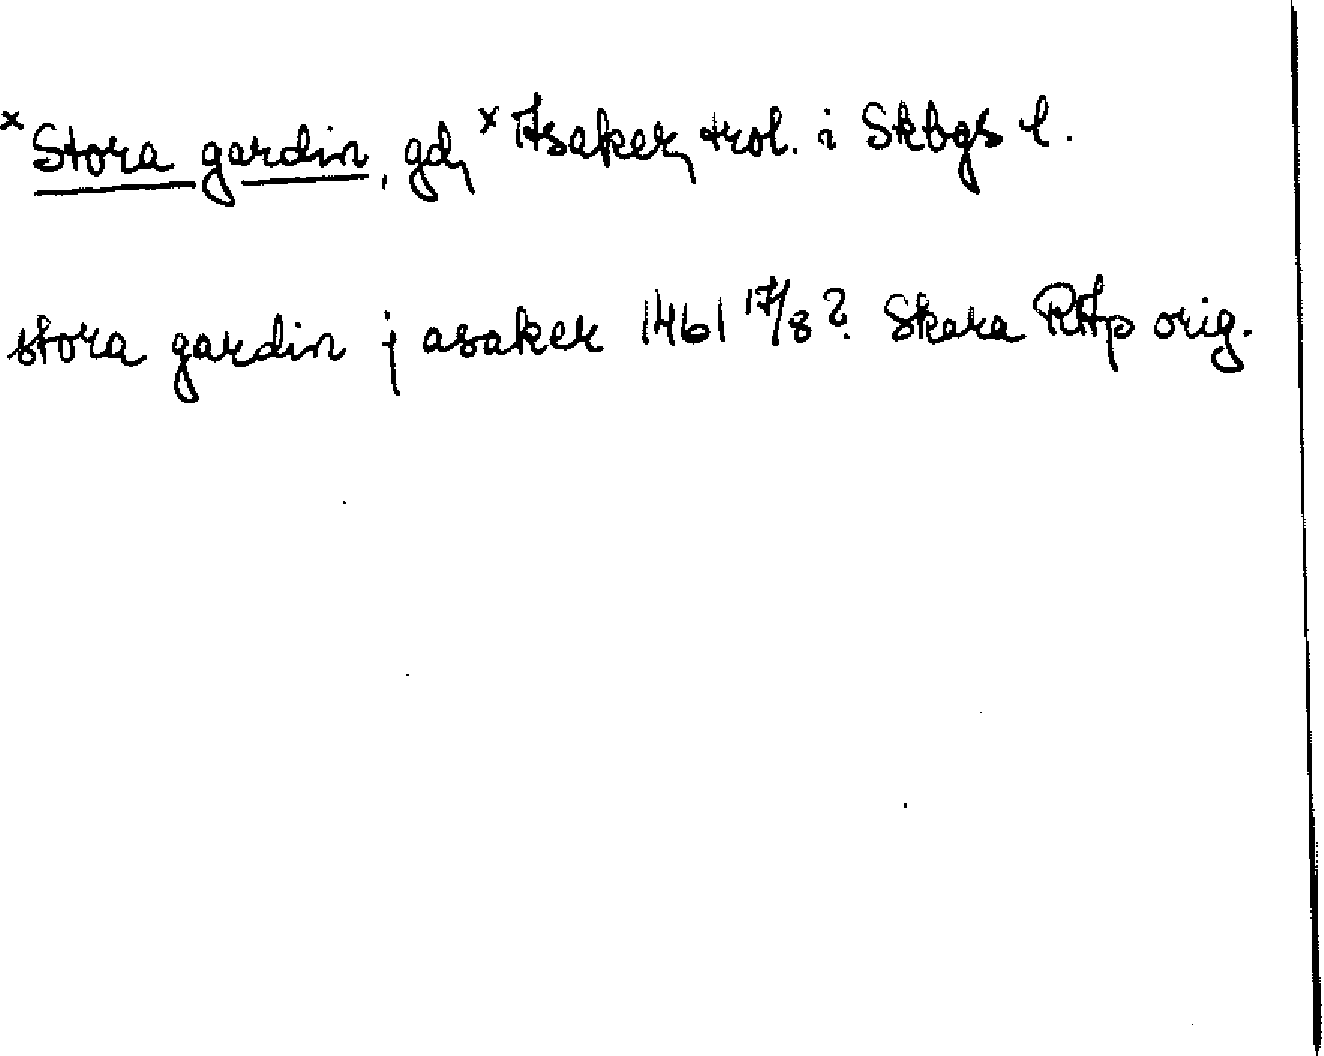 ×Stora gardin, gd, ×Asaker, trol. i Skbgs l.
stora gardin j asaker 1461 17/8? Skara RAp orig.